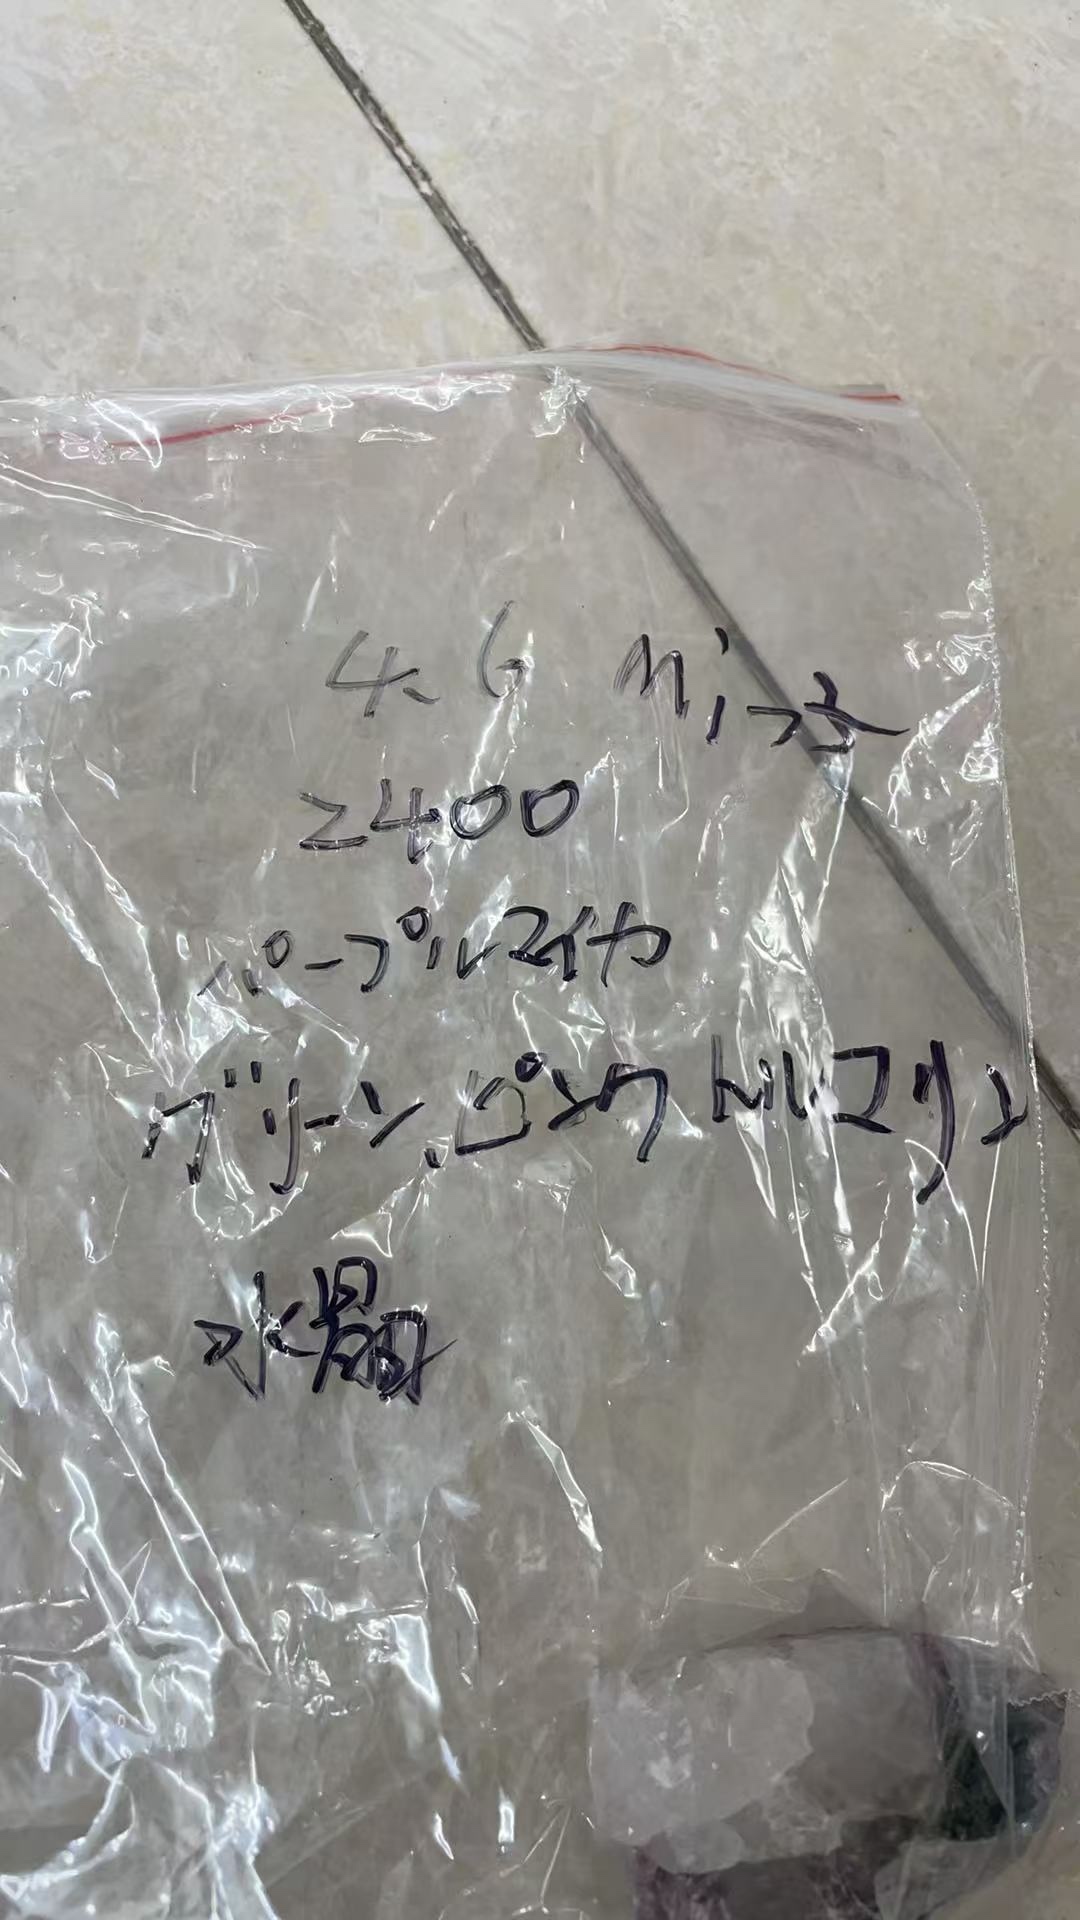 4.6 Miっき
2400
パープルマイカ
グリーン、ピンクトルマリン
水晶